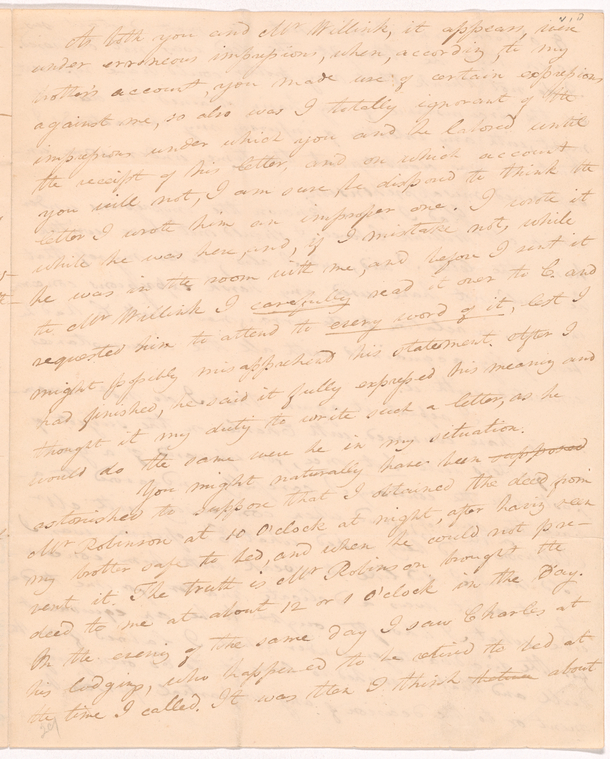 As both you and Mr Willink, it appears, were
under erroneous impressions, when, according to my
brother's account, you made use of certain expressions
against me, so also was I totally ignorant of the
impressions under which you and he labored until
the receipt of his letter, and on which account
you will not, I am sure, be disposed to think the
letter I wrote him an improper one. I wrote it
while he was here, and, if I mistake not, while
he was in the room with me, and before I sent it
to Mr Willink I carefully read it over to C. and
requested him to attend to every word of it, lest I
might possibly misapprehend his statement. After I
had finished, he said it fully expressed his meaning and
thought it my duty to write such a letter, as he
would do the same were he in my situation.
You might naturally have been supposed
astonished to suppose that I obtained the deed from
Mr Robinson at 10 O'clock at night, after having seen
my brother safe to bed, and when he could not pre-
vent it. The truth is Mr Robinson brought the
deed to me at about 12 or 1 O'clock in the Day.
In the evening of the same day I saw Charles at
his lodgings, who happened to be retired to bed at
the time I called. It was then I think about